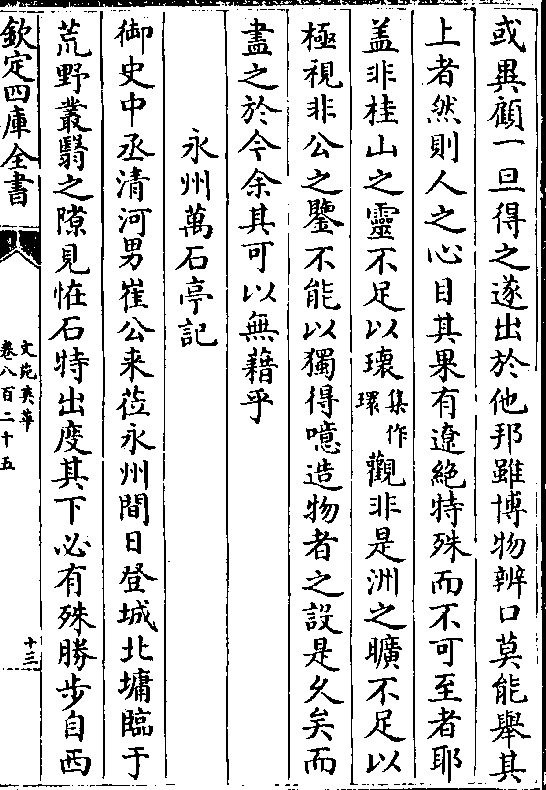 或異顧一旦得之遂出於他邦雖博物辨口莫能舉其
上者然則人之心目其果有遼絶特殊而不可至者耶
盖非桂山之靈不足以瓌集作環觀非是洲之曠不足以
極視非公之鑒不能以獨得噫造物者之設是久矣而
盡之於今余其可以無藉乎
永州萬石亭記
御史中丞清河男崔公来莅永州間日登城北墉臨于
荒野叢翳之隙見恠石特出度其下必有殊勝步自西
欽定四庫全書
文苑英華
卷八百二十五
十三